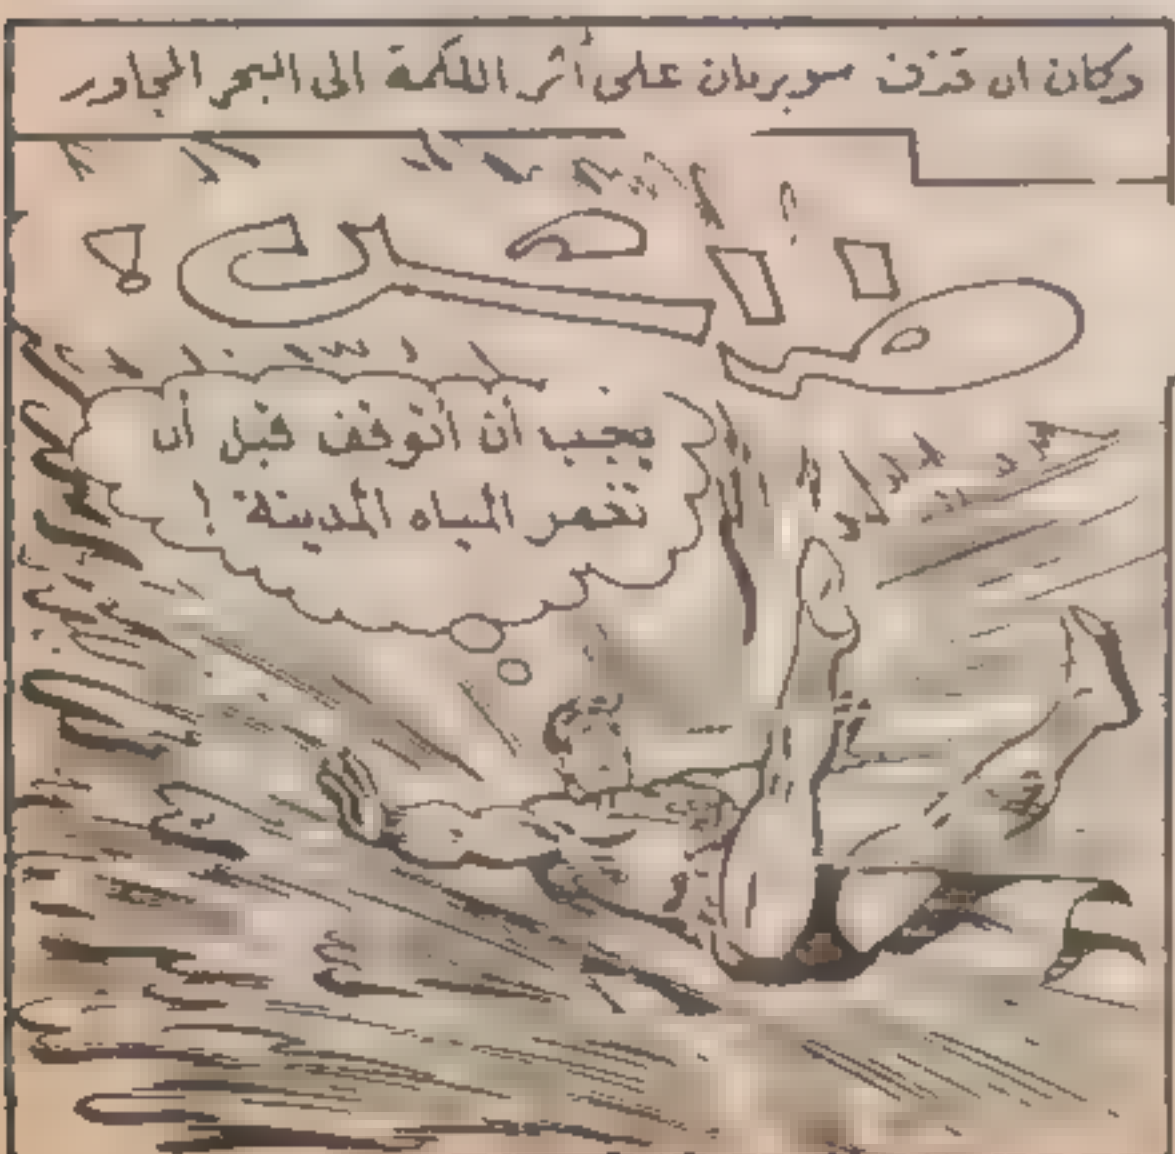 وكان ان قذف سوبرمان على أثر اللكمة الى البحر المجاور
يجب أن أتوقف قبل أن
تغمر المياه المدينة !